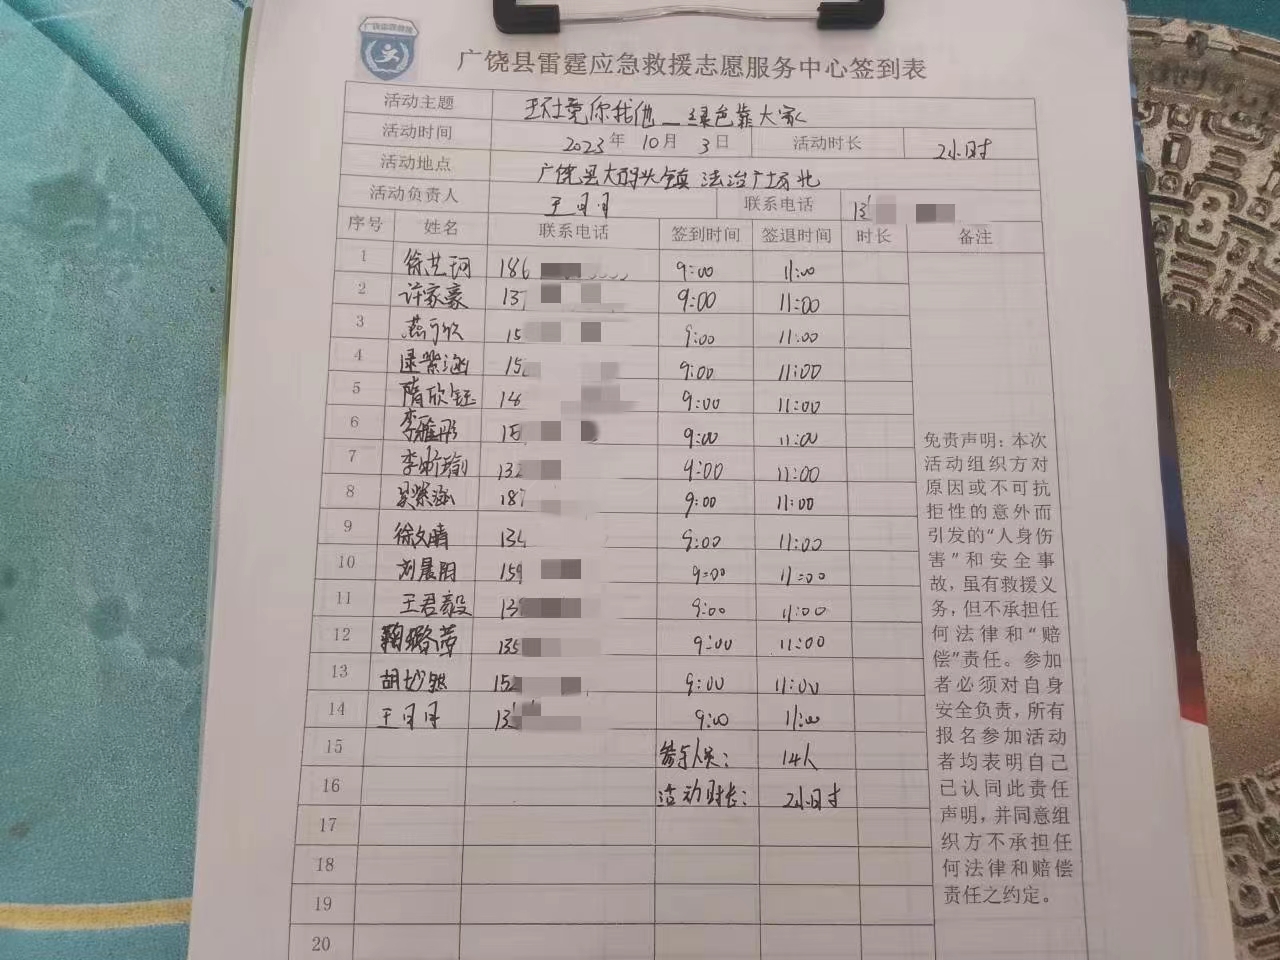 广饶县雷霆应急救援志愿服务中心签到表
活动主题 环境靠你我他—绿色靠大家
活动时间 2023年 10月 3日 活动时长 2小时
活动地点 广饶县大码头镇法治广场北
活动负责人 王月月 联系电话 13
序号 姓名 联系电话 签到时间 签退时间 时长 备注
1 徐艺珂 186 9:00 11:00
2 许家豪 13 9:00 11:00
3 燕可欣 15 9:00 11:00
4 紫涵 15 9:00 11:00
5 隋欣钰 9:00 11:00
6 李雅彤 15 9:00 11:00
7 李昕瑜 132 9:00 11:00
8 吴紫涵 187 9:00 11:00
9 徐文晴 134 9:00 11:00
10 刘晨阳 159 9:00 11:00
11 王君毅 13 9:00 11:00
12 鞠璐萍 135 9:00 11:00
13 胡妙 152 9:00 11:00
14 王月月 13 9:00 11:00
15 参与人员: 14人
16 活动时长: 2小时
17
18
19
20
免责声明:本次
活动组织方对
原因或不可抗
拒性的意外而
引发的“人身伤
害”和安全事
故,虽有救援义
务,但不承担任
何法律和“赔
偿”责任。参加
者必须对自身
安全负责,所有
报名参加活动
者均表明自己
已认同此责任
声明,并同意组
织方不承担任
何法律和赔偿
责任之约定。